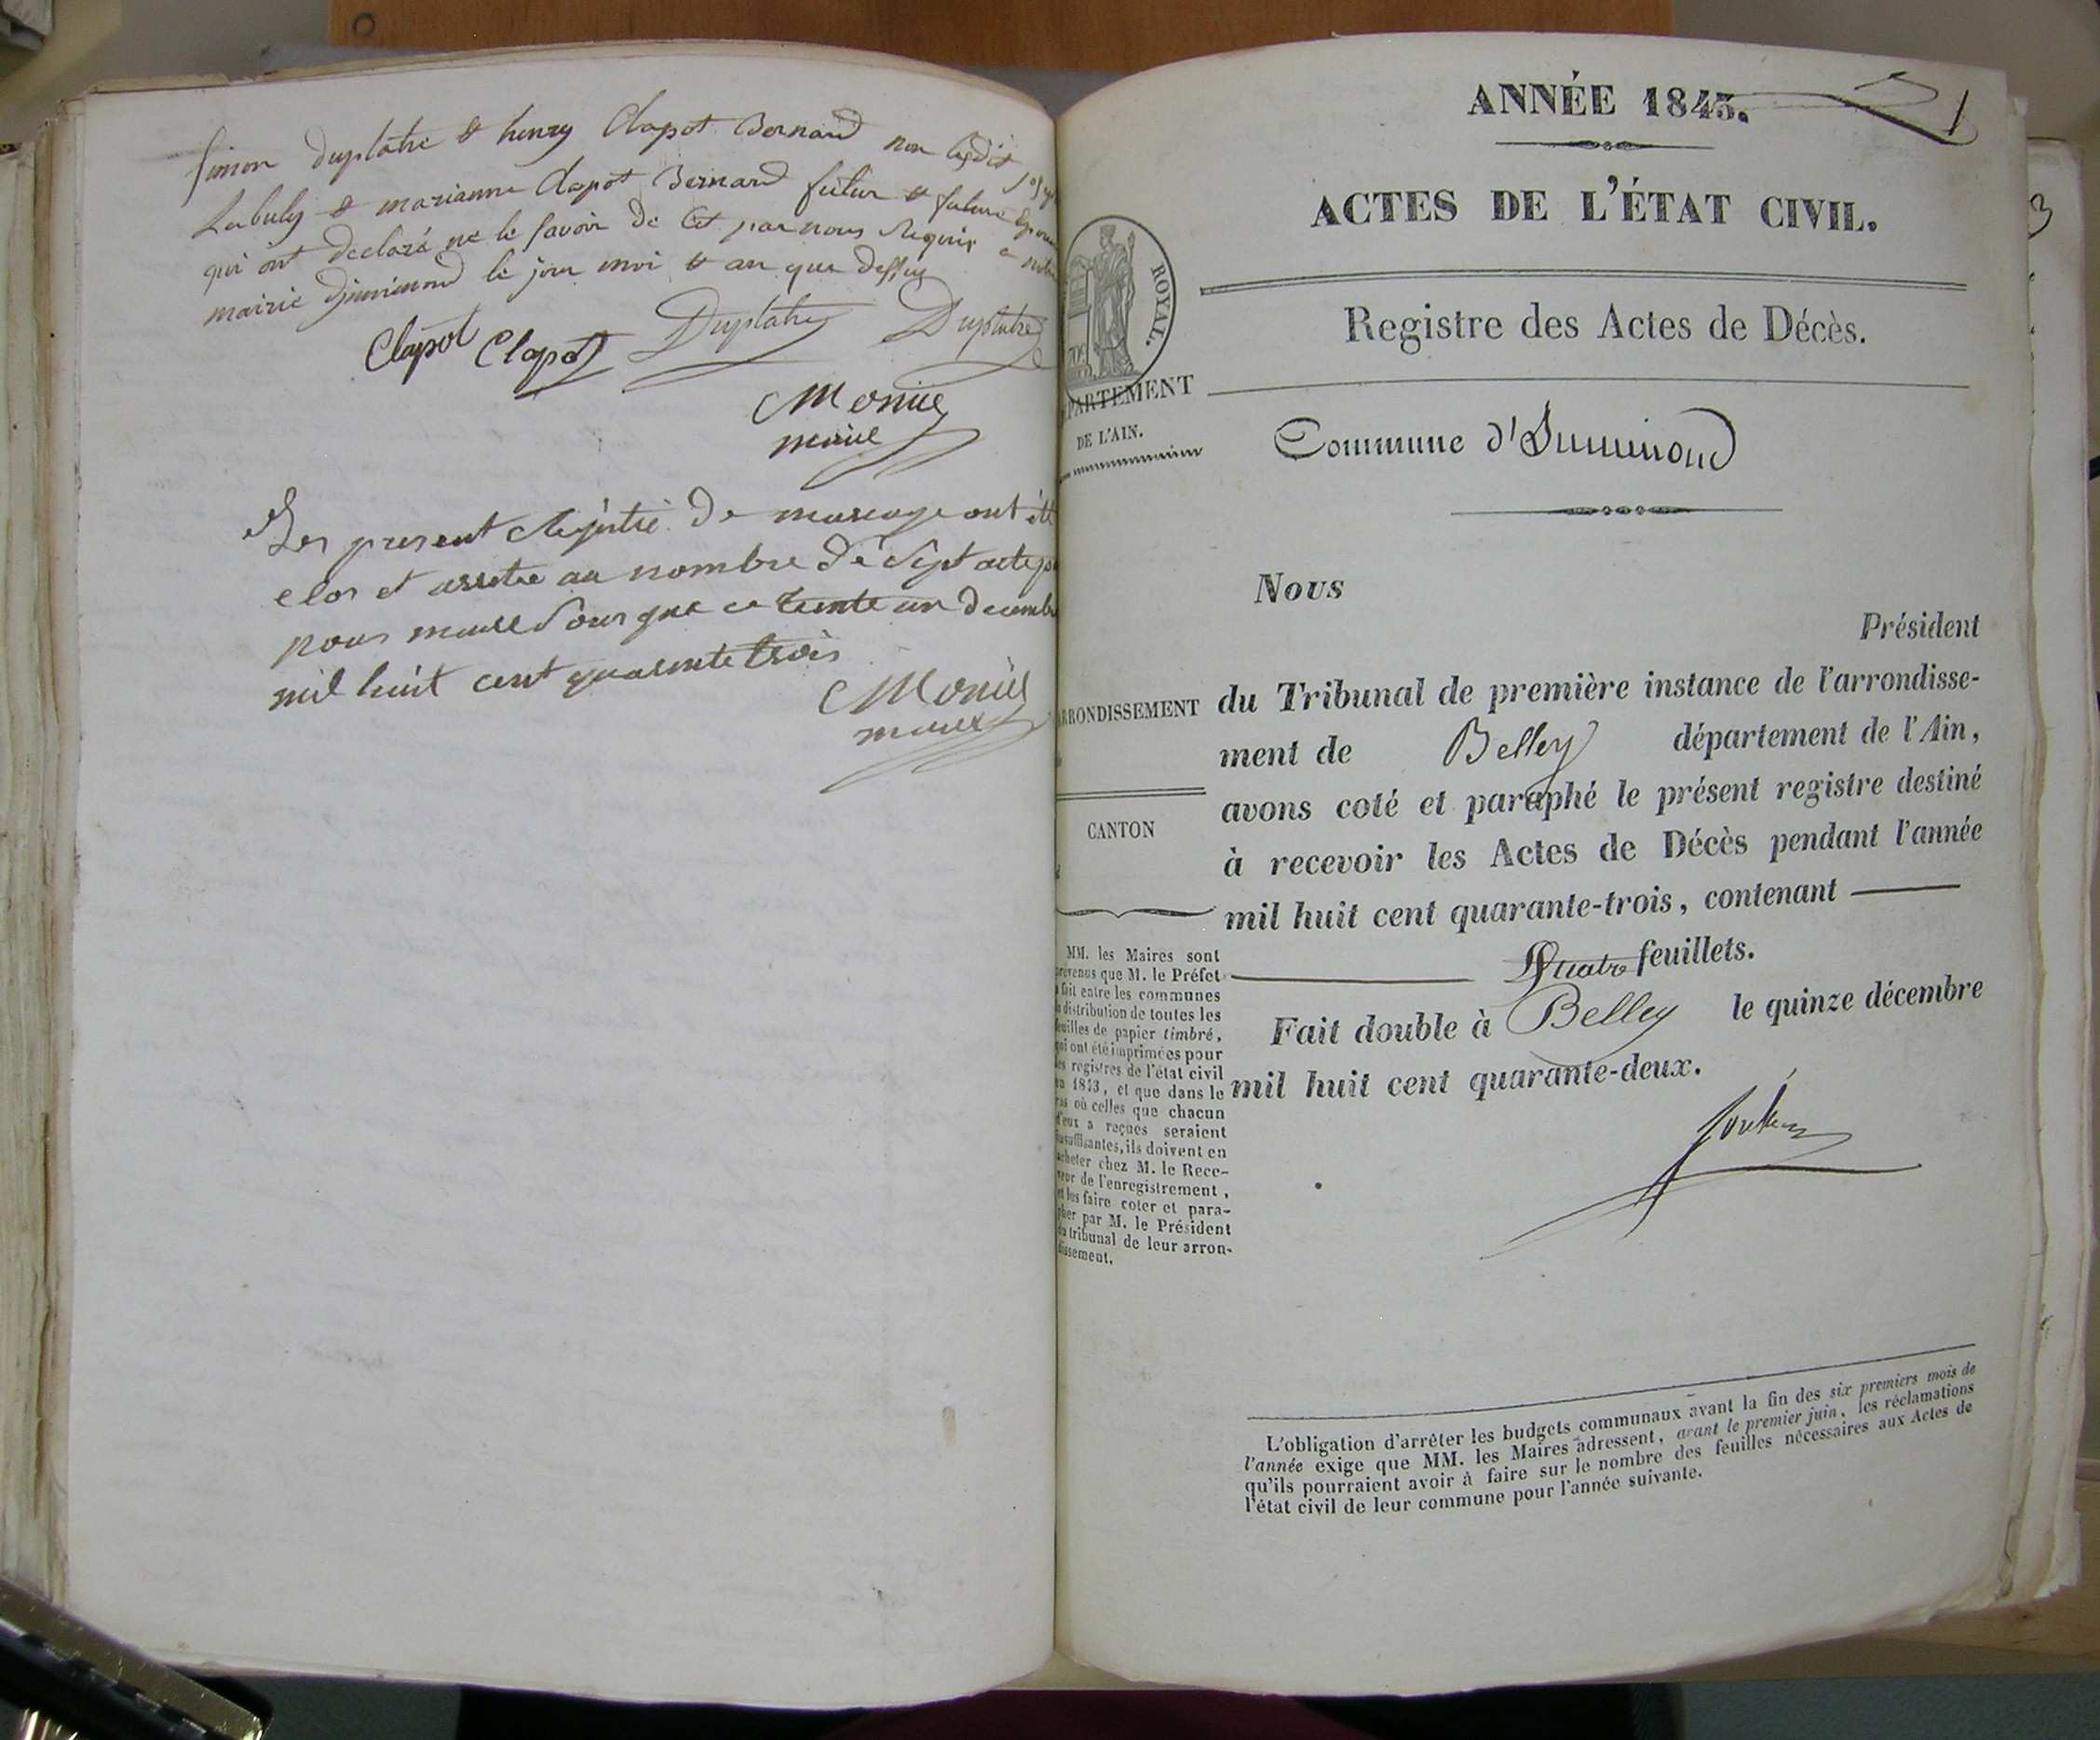 Simon Duplatre & henry Clapot Bernard non les dit
Labuly & marianne Clapot Bernard futur & future
qui ont declaré ne le savoir de cet par nous requis a
mairie d'innimond le jour moi & an que dessus
Clapot Clapot Duplatre Duplatre
Monier
maire
Les present Regitre de mariage ont été
clos et arretee au nombre de Sept acte
nous maire Sousigne ce trente un decembre
mil huit cent quarente trois
Monier
maire
ANNÉE 1843.
1
ACTES DE L'ÉTAT CIVIL.
ROYAL.
Registre des Actes de Décès.
PARTEMENT
DE L'AIN.
Commune d'Innimond
Nous
Président
RRONDISSEMENT
du Tribunal de première instance de l'arrondisse-
ment de Belley département de l'Ain,
avons coté et paraphé le présent registre destiné
CANTON
à recevoir les Actes de Décès pendant l'année
mil huit cent quarante-trois, contenant
Quatre feuillets.
Fait double à Belley le quinze décembre
mil huit cent quarante-deux.
MM. les Maires sont
prévenus que M. le Préfet
a fait entre les communes
la distribution de toutes les
feuilles de papier timbré,
qui ont été imprimées pour
les registres de l'état civil
en 1843, et que dans le
cas où celles que chacun
d'eux a reçues seraient
insuffisantes, ils doivent en
acheter chez M. le Rece-
veur de l'enregistrement,
et les faire coter et para-
pher par M. le Président
du tribunal de leur arron-
dissement.
L'obligation d'arrêter les budgets communaux avant la fin des six premiers mois de
l'année exige que MM. les Maires adressent, avant le premier juin, les réclamations
qu'ils pourraient avoir à faire sur le nombre des feuilles nécessaires aux Actes de
l'état civil de leur commune pour l'année suivante.
3